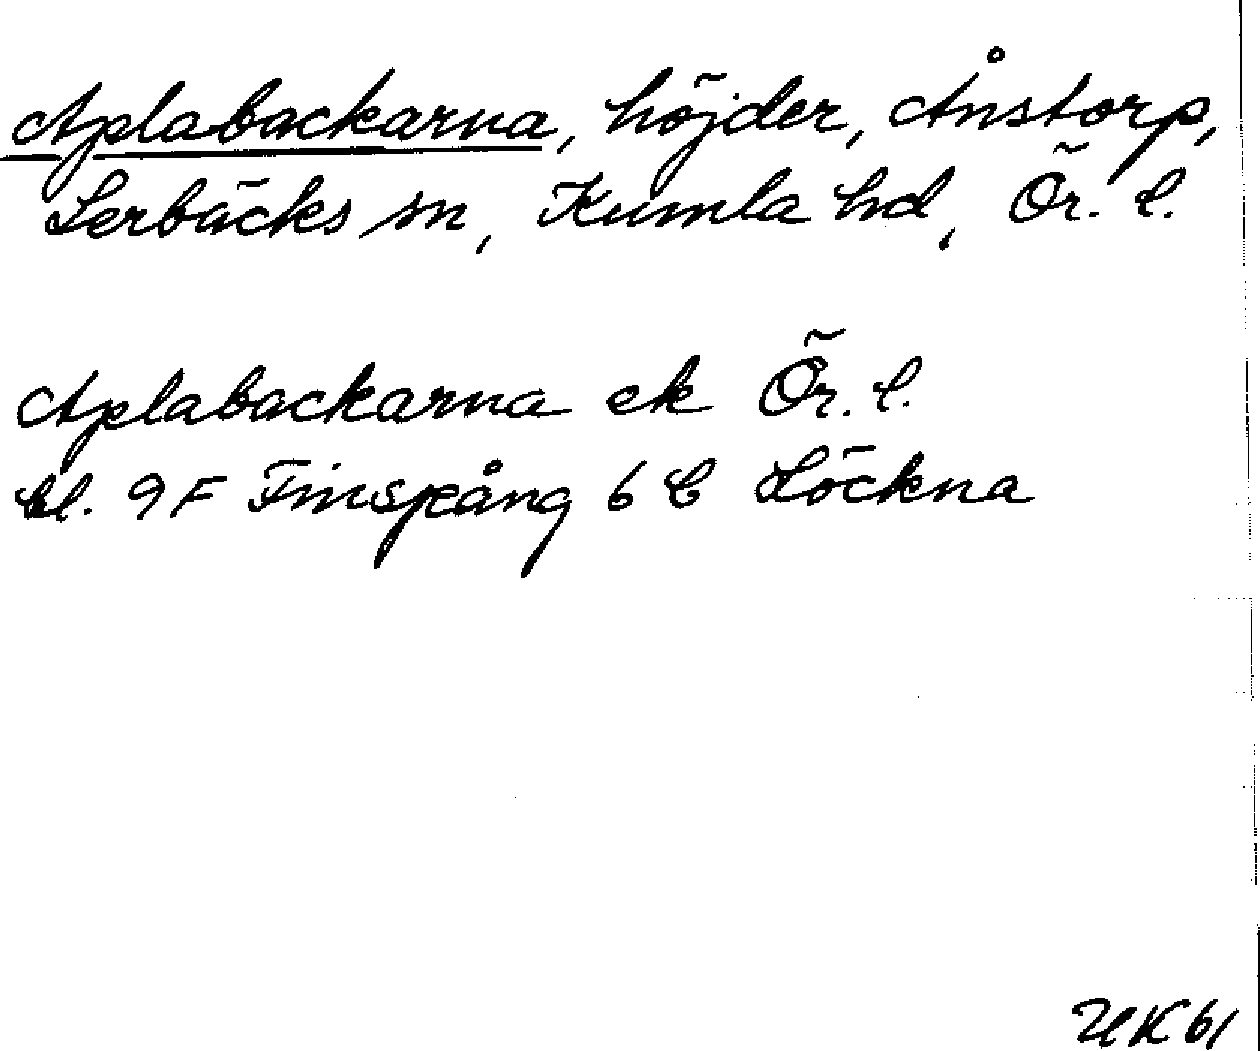 Aplabackarna, höjder, Ånstorp,
Lerbäcks sn, Kumla hd, Ör. l.
Aplabackarna ek Ör. l.
bl. 9F Finspång 6 b Löckna
UK 61